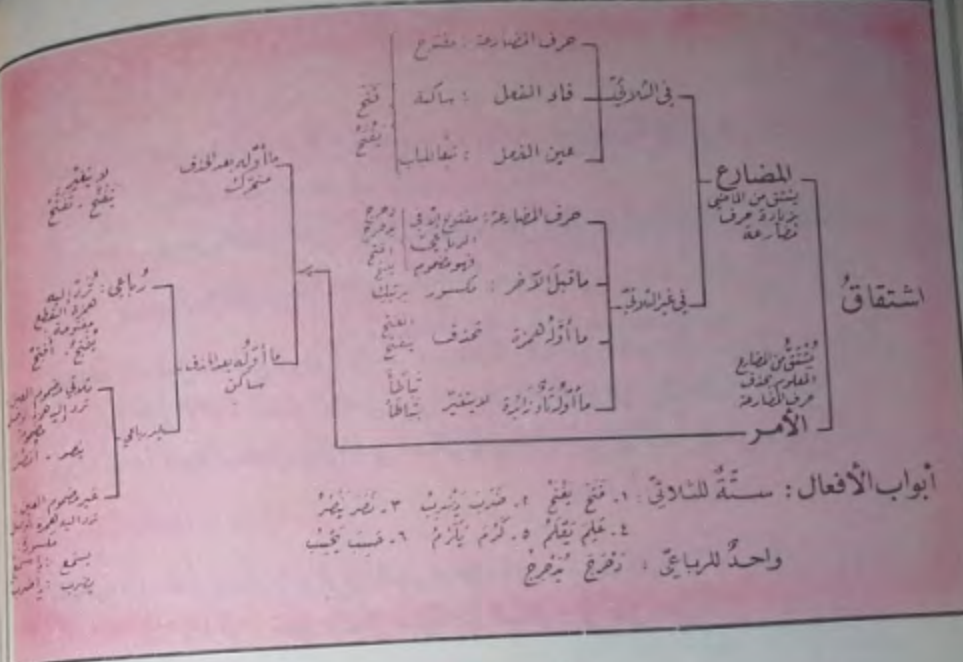 اشتقاقُ
المضارع
يشتق من الماضي
بزيادة حرف
مضارعة
في الثلاثيّ
حرف المضارعة : مفتوح
فاء الفعل : ساكنة
عين الفعل : تبعا للباب
فَتَحَ
يَفْتَحُ
في غير الثلاثيّ
حرف المضارعة : مفتوح إلا في
الرباعيّ
فهو مضموم
دحرج
يدحرج
ما قبل الآخر : مكسور
ما أوّله همزة تحذف
ما أوّله تاء زائدة لا يتغيّر
تباطأ
يتباطأ
يُشْتَقُّ من المضارع
المعلوم بحذف
حرف المضارعة
الأمر
ما أوّله بعد الحذف
متحرّك
لا يتغيّر
ما أوّله بعد الحذف
ساكن
رُباعي : تُرَدّ إليه
همزة القطع
مفتوحة
غير رباعي
ثلاثي مضموم العين
ترد إليه همزة
مضمومة
ينصر . أُنصُر
غير مضموم العين
ترد إليه همزة
مكسورة
يسمع
يضرب
أبواب الأفعال : ستّةٌ للثلاثيّ : ١. فَتَحَ يَفْتَحُ ٢. ضَرَبَ يَضْرِبُ ٣. نَصَرَ يَنْصُرُ
٤. عَلِمَ يَعْلَمُ ٥. كَرُمَ يَكْرُمُ ٦. حَسِبَ يَحْسِبُ
واحدٌ للرباعيّ : دَحْرَجَ يُدَحْرِجُ